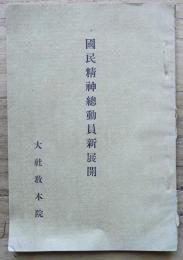 國民精神總動員新展開
大社教本院